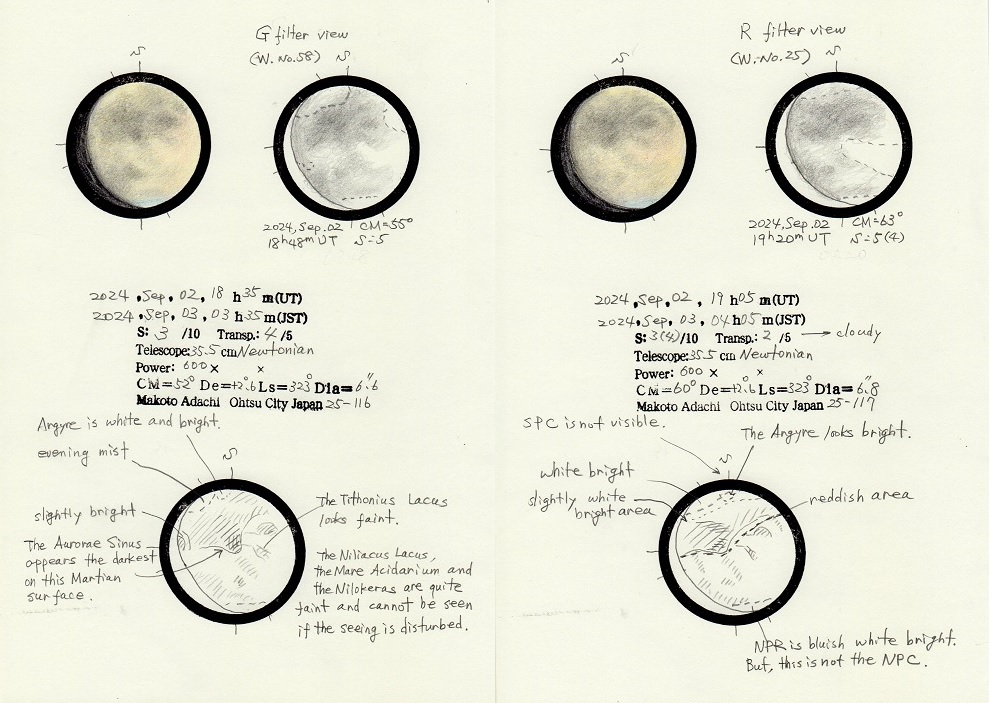 G filter view
(W. No.58)
S
S
2024, Sep. 02 CM=55°
18h48m UT S=5
2024, Sep, 02, 18 h 35 m (UT)
2024, Sep, 03, 03 h 35 m (JST)
S: 3 /10 Transp.: 4 /5
Telescope: 35.5 cm Newtonian
Power: 600 × ×
CM=52° De=+2°.6 Ls=323° Dia=6".6
Makoto Adachi Ohtsu City Japan 25-116
Argyre is white and bright.
evening mist
S
slightly bright
The Aurorae Sinus
appears the darkest
on this Martian
surface.
The Tithonius Lacus
looks faint.
The Niliacus Lacus,
the Mare Acidarium and
the Nilokeras are quite
faint and cannot be seen
if the seeing is disturbed.
R filter view
(W. No.25)
S
S
2024, Sep. 02 CM=63°
19h20m UT S=5(4)
2024, Sep, 02, 19 h 05 m (UT)
2024, Sep, 03, 04 h 05 m (JST)
S: 3(4)/10 Transp.: 2 /5 → cloudy
Telescope: 35.5 cm Newtonian
Power: 600 × ×
CM=60° De=+2°.6 Ls=323° Dia=6".8
Makoto Adachi Ohtsu City Japan 25-117
SPC is not visible.
The Argyre looks bright.
S
white bright
slightly white
bright area
reddish area
NPR is bluish white bright.
But, this is not the NPC.